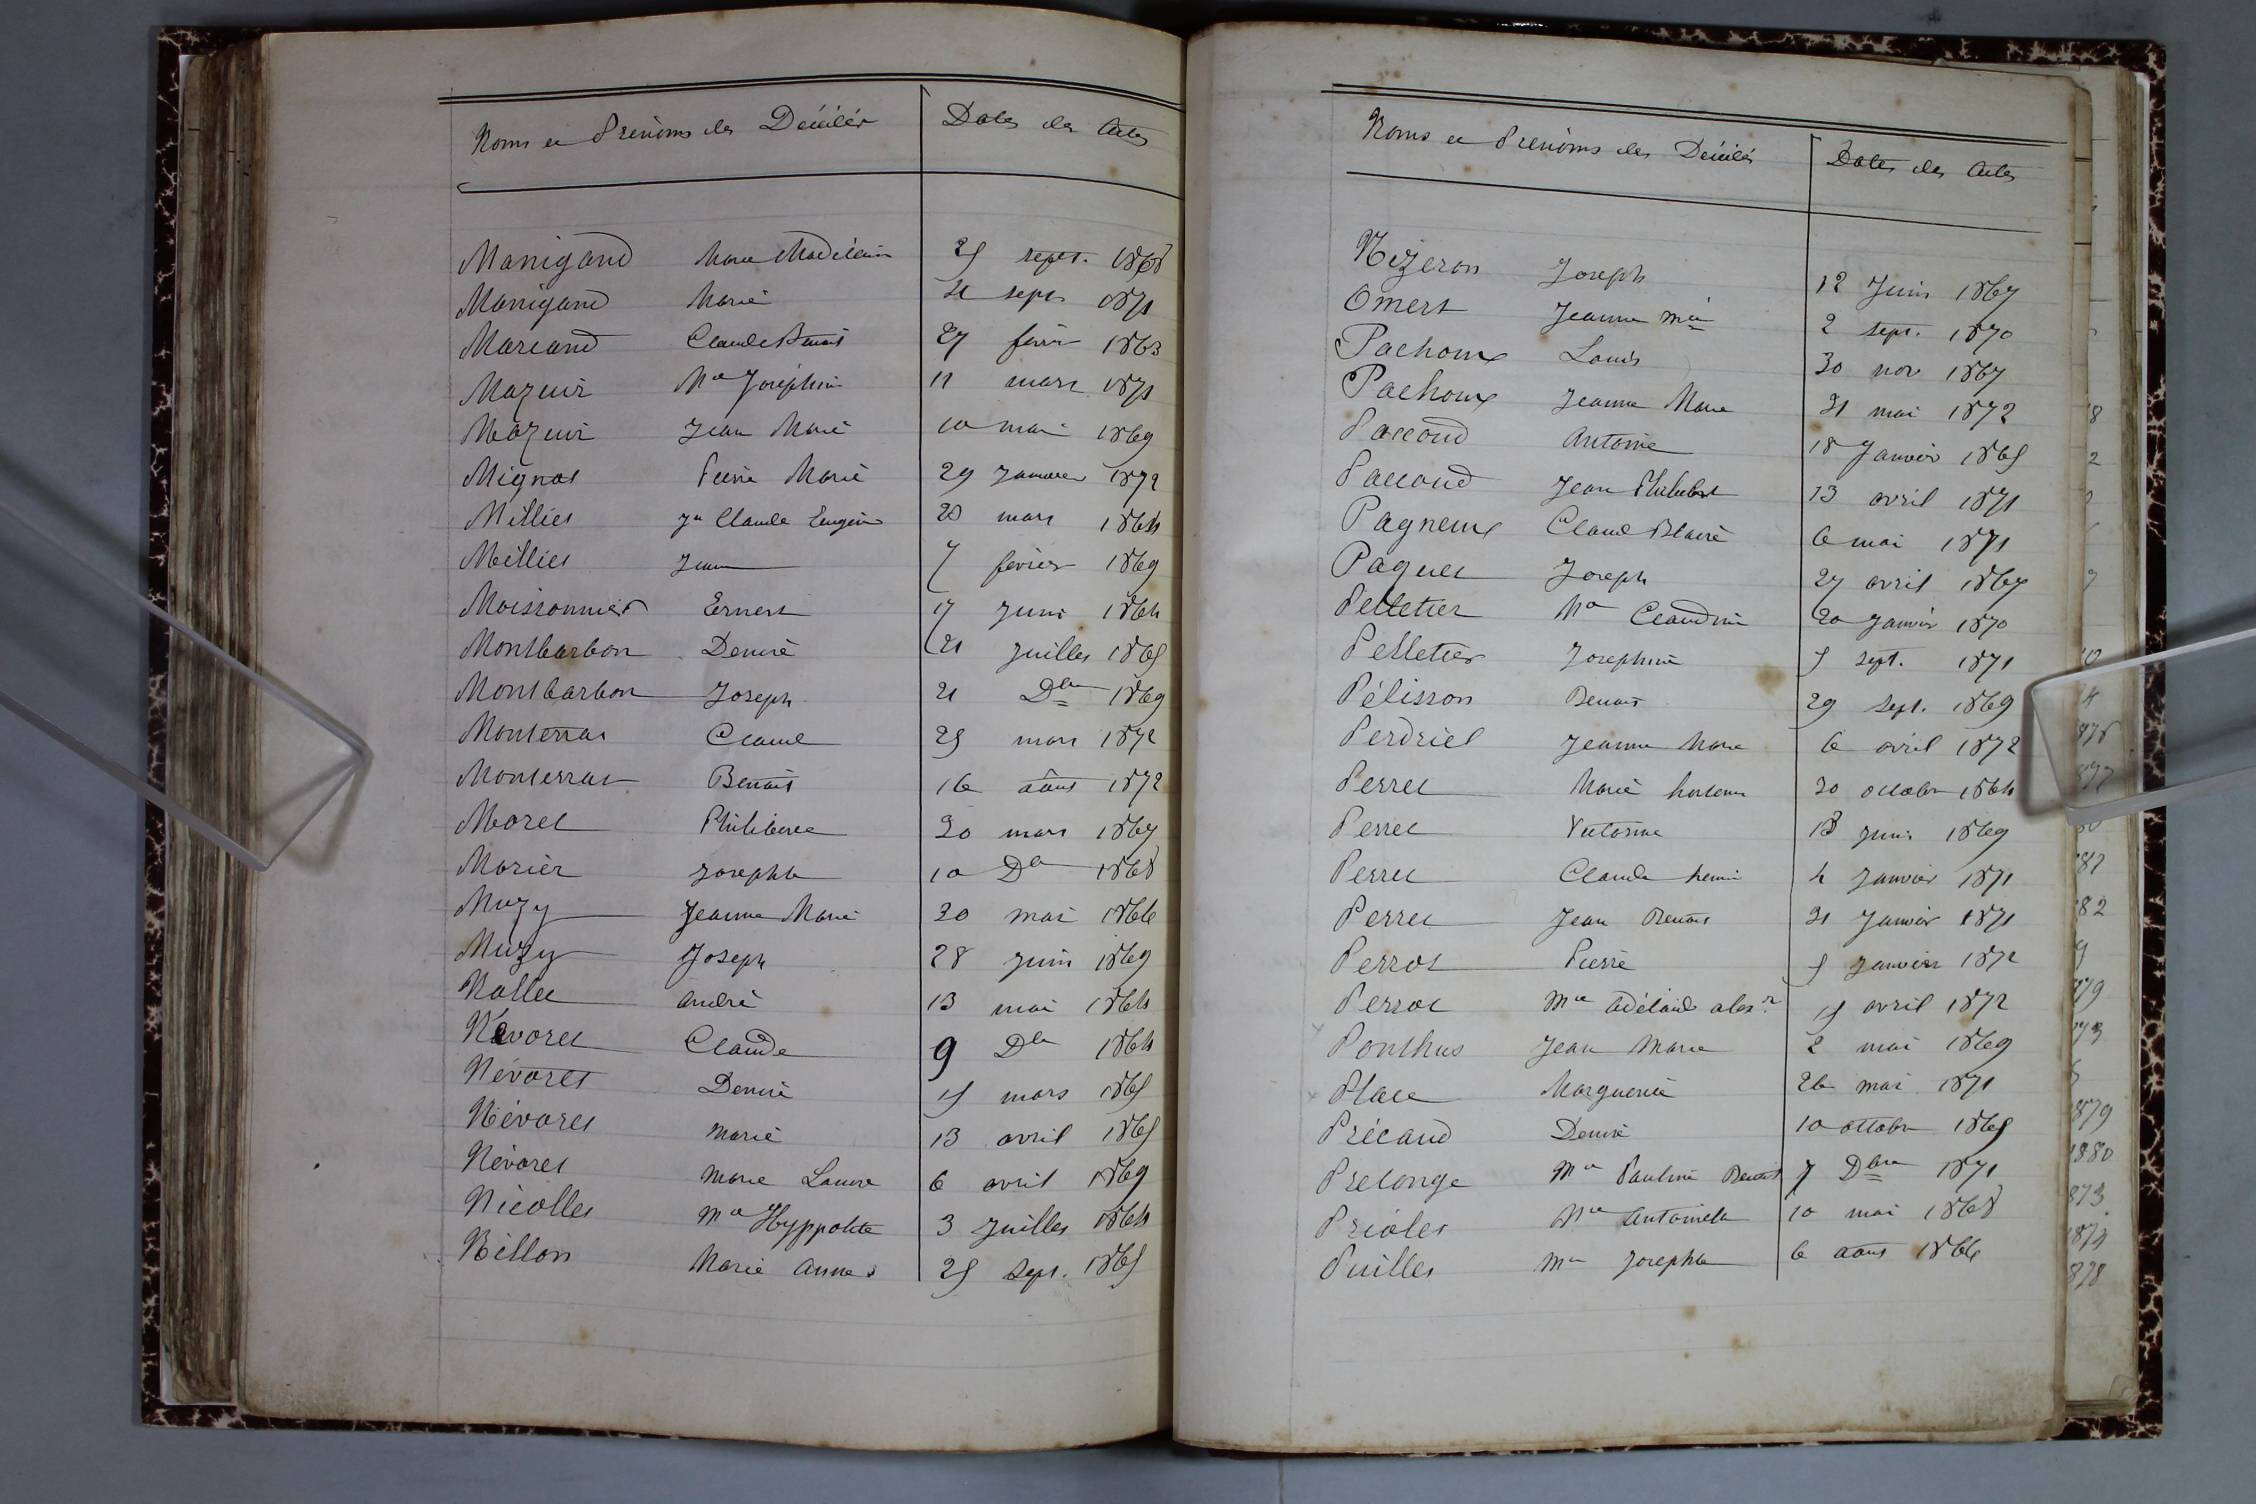 Noms et Prénoms des Décédés Dates des Actes
Manigand Marie Madeleine 25 sept. 1868
Manigand Marie 21 sept 1871
Marcand Claude Benoit 27 févr 1863
Mazuir Me Joséphine 11 mars 1871
Mazuir Jean Marie 10 mai 1869
Mignot Pierre Marie 29 Janvier 1872
Milliet Jn Claude Eugène 20 mars 1864
Milliet Jean 7 février 1869
Moissonnier Ernest 17 Juin 1864
Montbarbon Denise 21 Juillet 1865
Montbarbon Joseph 21 Dbre 1869
Monterrat Claude 25 mars 1872
Monterrat Benoit 16 août 1872
Morel Philiberte 20 mars 1867
Morier Josephte 10 Dbre 1868
Muzy Jeanne Marie 30 mai 1866
Muzy Joseph 28 juin 1869
Nallet André 13 mai 1864
Névoret Claude 9 Dbre 1864
Névoret Denise 15 mars 1865
Névoret Marie 13 avril 1865
Névoret Marie Laure 6 avril 1869
Nicollet Me Hyppolite 3 Juillet 1864
Nillon Marie Anne 25 Sept. 1865
Noms et Prénoms des Décédés Dates des Actes
Nizeron Joseph 12 Juin 1867
Omert Jeanne Mie 2 sept. 1870
Pachoux Louis 30 nov 1867
Pachoux Jeanne Marie 31 mai 1872
Paccoud Antoine 18 Janvier 1865
Paccoud Jean Philibert 13 avril 1871
Pagneux Claude Marie 6 mai 1871
Paquet Joseph 27 avril 1867
Pelletier Me Claudine 20 Janvier 1870
Pelletier Josephine 5 sept. 1871
Pélisson Benoit 29 sept. 1869
Perdriel Jeanne Marie 6 avril 1872
Perret Marie hortense 30 octobre 1864
Perret Victorine 13 Juin 1869
Perret Claude henri 4 Janvier 1871
Perret Jean Benoit 31 Janvier 1871
Perrot Pierre 5 Janvier 1872
Perrot Me Adélaïde alexne 15 avril 1872
Ponthus Jean Marie 2 mai 1869
Place Marguerite 26 mai 1871
Précaud Denise 10 octobre 1865
Prelonge Me Pauline Benoit 7 Dbre 1871
Priolet Me Antoinette 10 mai 1868
Puillet Me Josephte 6 août 1866